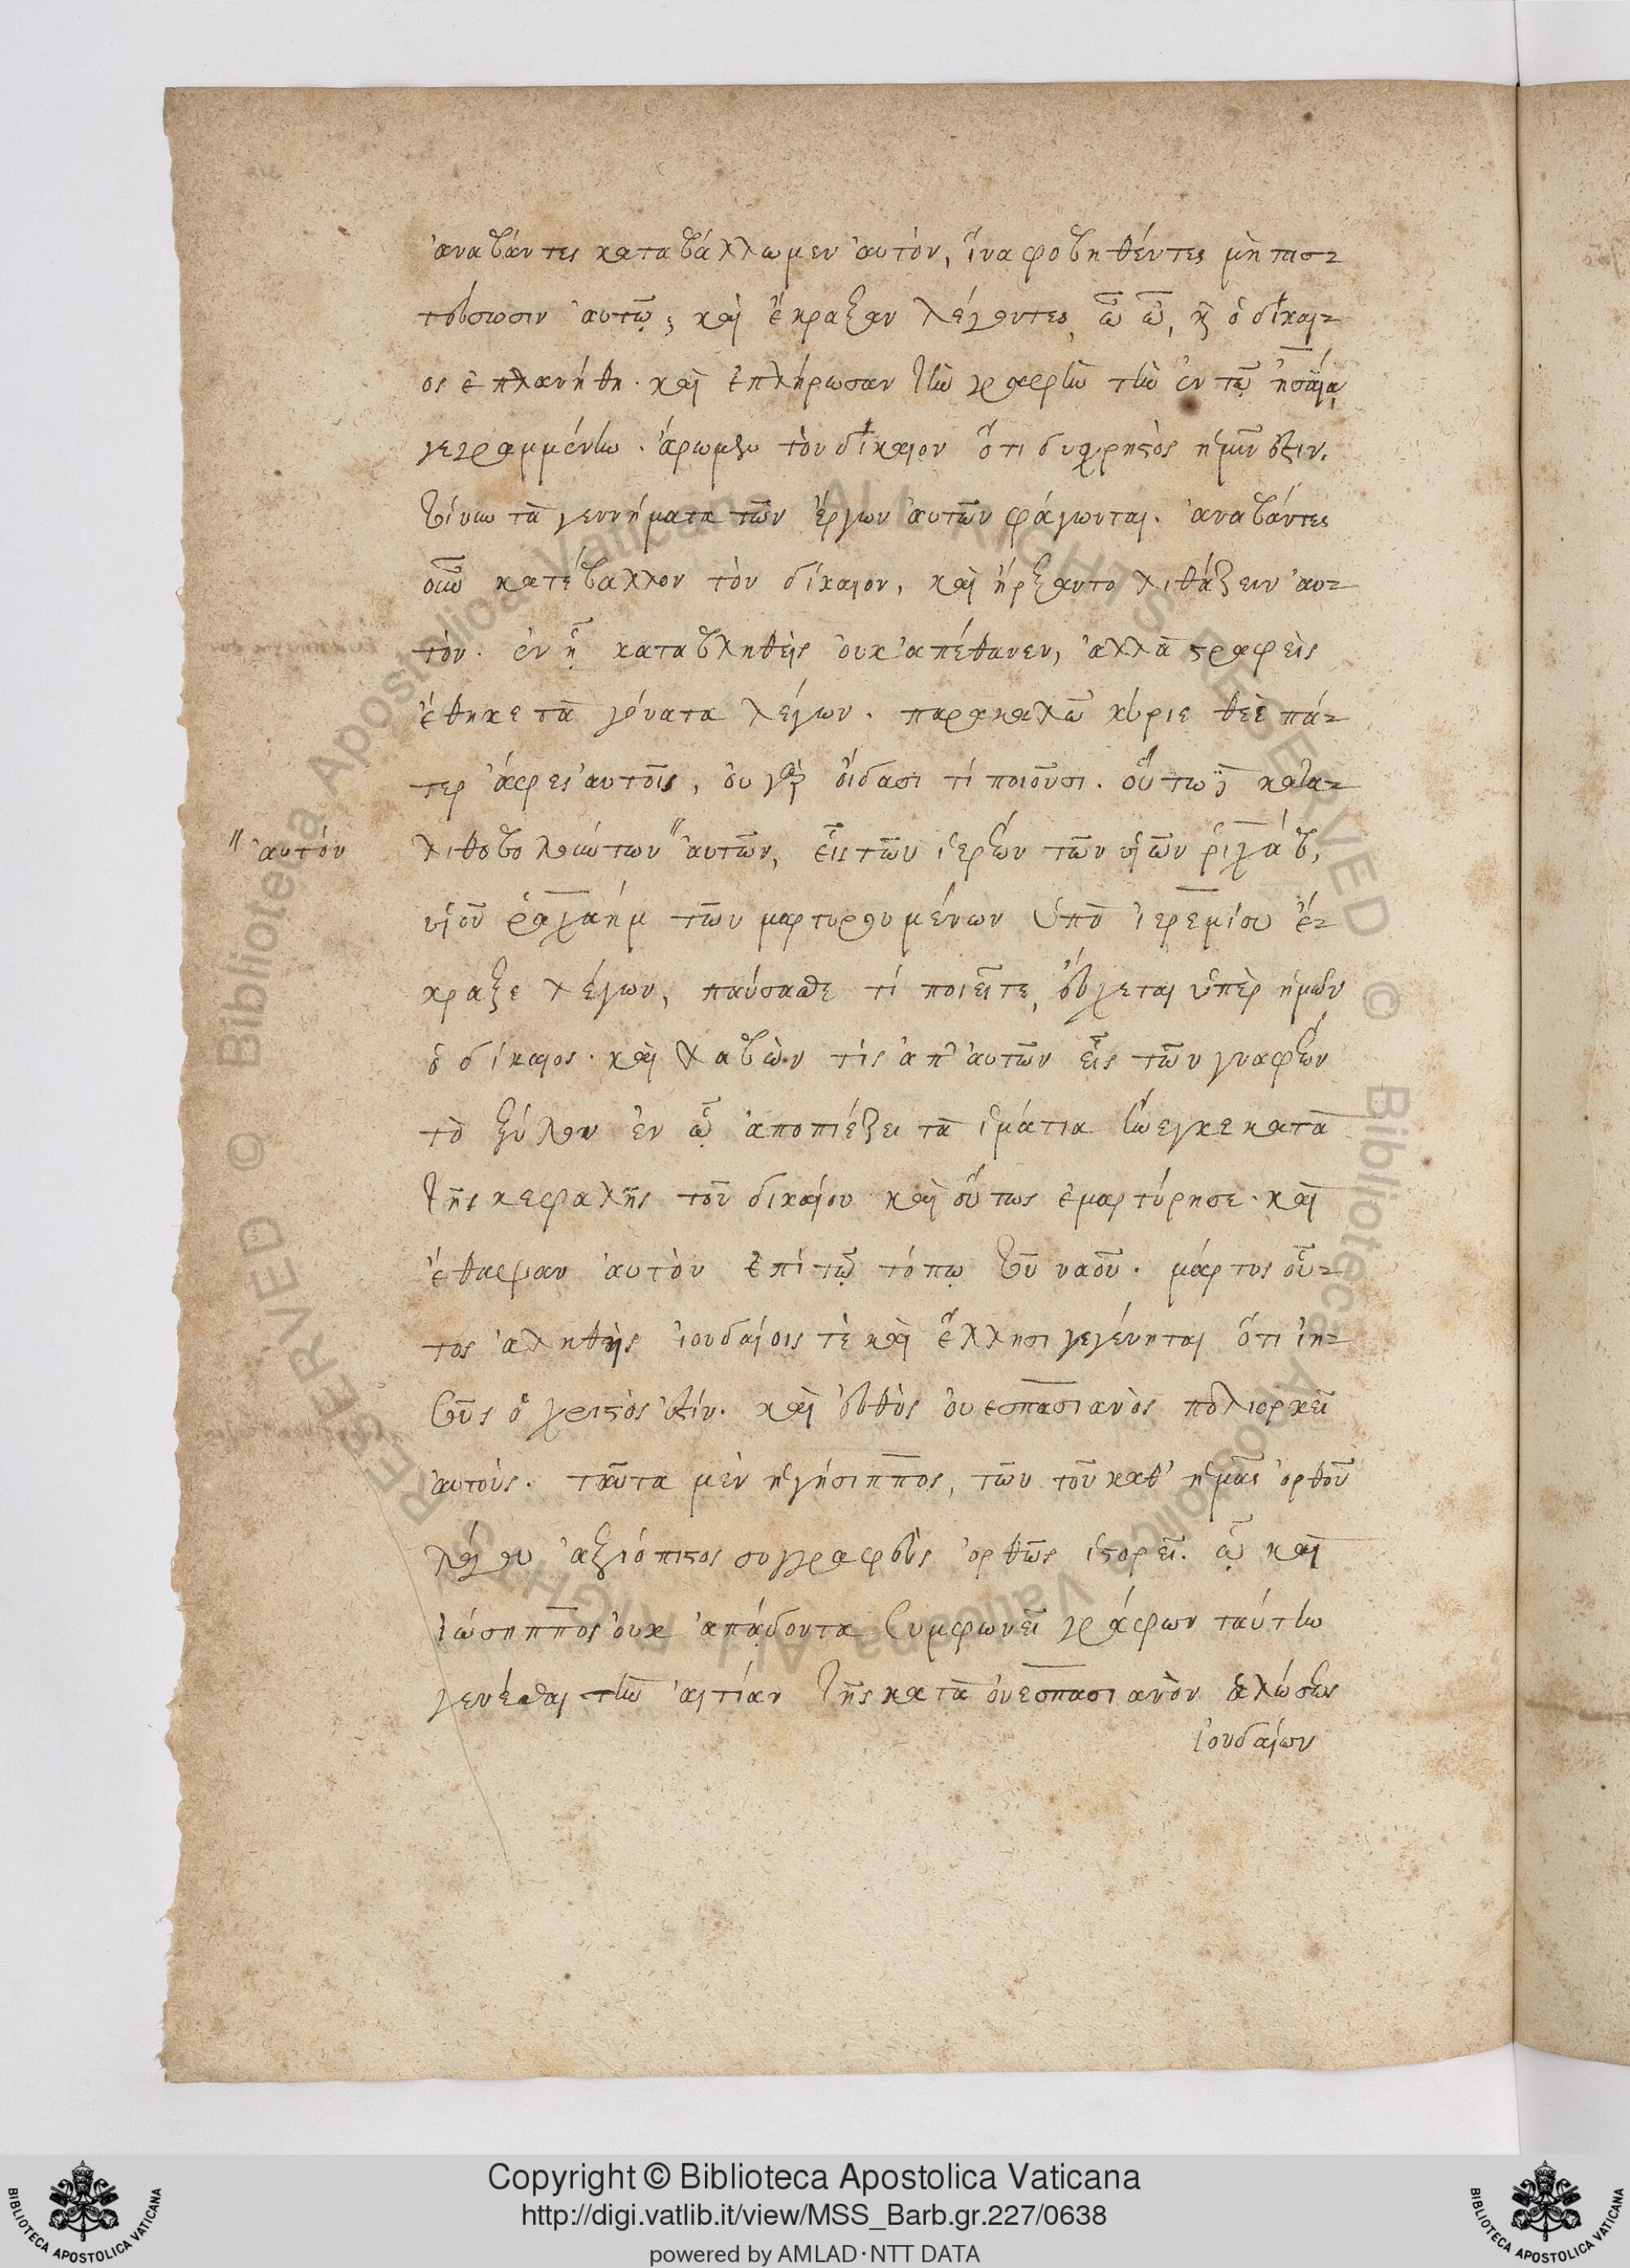 ἀναβάντες καταβάλλωμεν ἀυτὸν, ἵνα φοβηθέντες μὴ πισ-
τεύσωσιν ἀυτῷ; καὶ ἔκραξαν λέγοντες, ὦ ὦ, κ̀ ὁ δίκαι-
ος ἐπλανήθη. καὶ ἐπλήρωσαν τὴν γραφὴν τὴν ἐν τῷ ἠσαΐᾳ
γεγραμμένην. ἄρωμεν τὸν δίκαιον ὅτι δυσχρηστὸς ἡμῖν ἐστιν.
τοίνυν τὰ γεννήματα τῶν ἔργων ἀυτῶν φάγωνται. ἀναβάντες
οὖν κατέβαλλον τὸν δίκαιον, καὶ ἤρξαντο λιθάζειν ἀυ-
τόν. ἐν ᾗ καταβληθεὶς ὀυκ ἀπέθανεν, ἀλλὰ στραφεὶς
ἔθηκε τὰ γόνατα λέγων. παρακαλῶ κύριε θεὲ πά-
τερ ἄφες ἀυτοῖς, ὀυ γὰρ ὄιδασι τί ποιοῦσι. οὕτω δὲ κατα-
λιθοβολούντων " ἀυτῶν, εἷς τῶν ἱερέων τῶν υἱῶν ῥιχάβ,
" ἀυτόν
υἱοῦ ῥαχαήμ τῶν μαρτυρουμένων ὑπὸ ἱερεμίου ἔ-
κραξε λέγων, παύσασθε τί ποιεῖτε, ἔυχεται ὑπὲρ ἡμῶν
ὁ δίκαιος. καὶ λαβὼν τὶς ἀπ' ἀυτῶν εἷς τῶν γναφέων
τὸ ξύλον ἐν ᾧ ἀποπιέζει τὰ ἱμάτια ἤνεγκε κατὰ
τῆς κεφαλῆς τοῦ δικαίου καὶ οὕτως ἐμαρτύρησε. καὶ
ἔθαψαν ἀυτὸν ἐπὶ τῷ τόπῳ τοῦ ναοῦ. μάρτυς οὗ-
τος ἀληθὴς ἰουδαίοις τὲ καὶ ἕλλησι γεγένηται ὅτι ἰη-
σοῦς ὁ χριστὸς ἐστίν. καὶ ἐυθὺς ὀυεσπασιανὸς πολιορκεῖ
ἀυτούς. ταῦτα μὲν ἡγήσιππος, τῶν τοῦ καθ' ἡμᾶς ὀρθοῦ
λόγου ἀξιόπιστος συγγραφεὺς ὀρθῶς ἱστορεῖ. ᾧ καὶ
ἰώσηππος ὀυκ ἀπᾴδοντα συμφωνεῖ γράφων ταύτην
γενέσθαι τὴν ἀιτίαν τῆς κατὰ ὀυεσπασιανὸν ἁλώσεως
ἰουδαίων
Copyright © Biblioteca Apostolica Vaticana
http://digi.vatlib.it/view/MSS_Barb.gr.227/0638
powered by AMLAD·NTT DATA
BIBLIOTECA APOSTOLICA VATICANA
BIBLIOTECA APOSTOLICA VATICANA
Biblioteca Apostolica Vaticana ALL RIGHTS RESERVED © Biblioteca Apostolica Vaticana ALL RIGHTS RESERVED ©